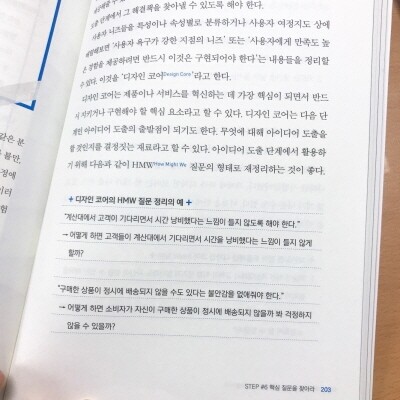 노출 단계에서 그 해결책을 찾아낼 수 있도록 해야 한다.
사용자 니즈들을 특성이나 속성별로 분류하거나 사용자 여정지도 상에
'사용자 욕구가 강한 지점의 니즈' 또는 '사용자에게 만족도 높
은 경험을 제공하려면 반드시 이것은 구현되어야 한다'는 내용들을 정리할
수 있다. 이것을 '디자인 코어Design Core'라고 한다.
디자인 코어는 제품이나 서비스를 혁신하는 데 가장 핵심이 되면서 반드
시 지키거나 구현해야 할 핵심 요소라고 할 수 있다. 디자인 코어는 다음 단
계인 아이디어 도출의 출발점이 되기도 한다. 무엇에 대해 아이디어 도출을
할 것인지를 결정짓는 재료라고 할 수 있다. 아이디어 도출 단계에서 활용하
기 위해 다음과 같이 HMWHow Might We 질문의 형태로 재정리하는 것이 좋다.
+ 디자인 코어의 HMW 질문 정리의 예 +
"계산대에서 고객이 기다리면서 시간 낭비했다는 느낌이 들지 않도록 해야 한다."
→ 어떻게 하면 고객들이 계산대에서 기다리면서 시간을 낭비했다는 느낌이 들지 않게
할까?
"구매한 상품이 정시에 배송되지 않을 수도 있다는 불안감을 없애줘야 한다."
→ 어떻게 하면 소비자가 자신이 구매한 상품이 정시에 배송되지 않을까 봐 걱정하지
않을 수 있을까?
STEP #6 핵심 질문을 찾아라 203
같은 분
불안,
정에
기러
험